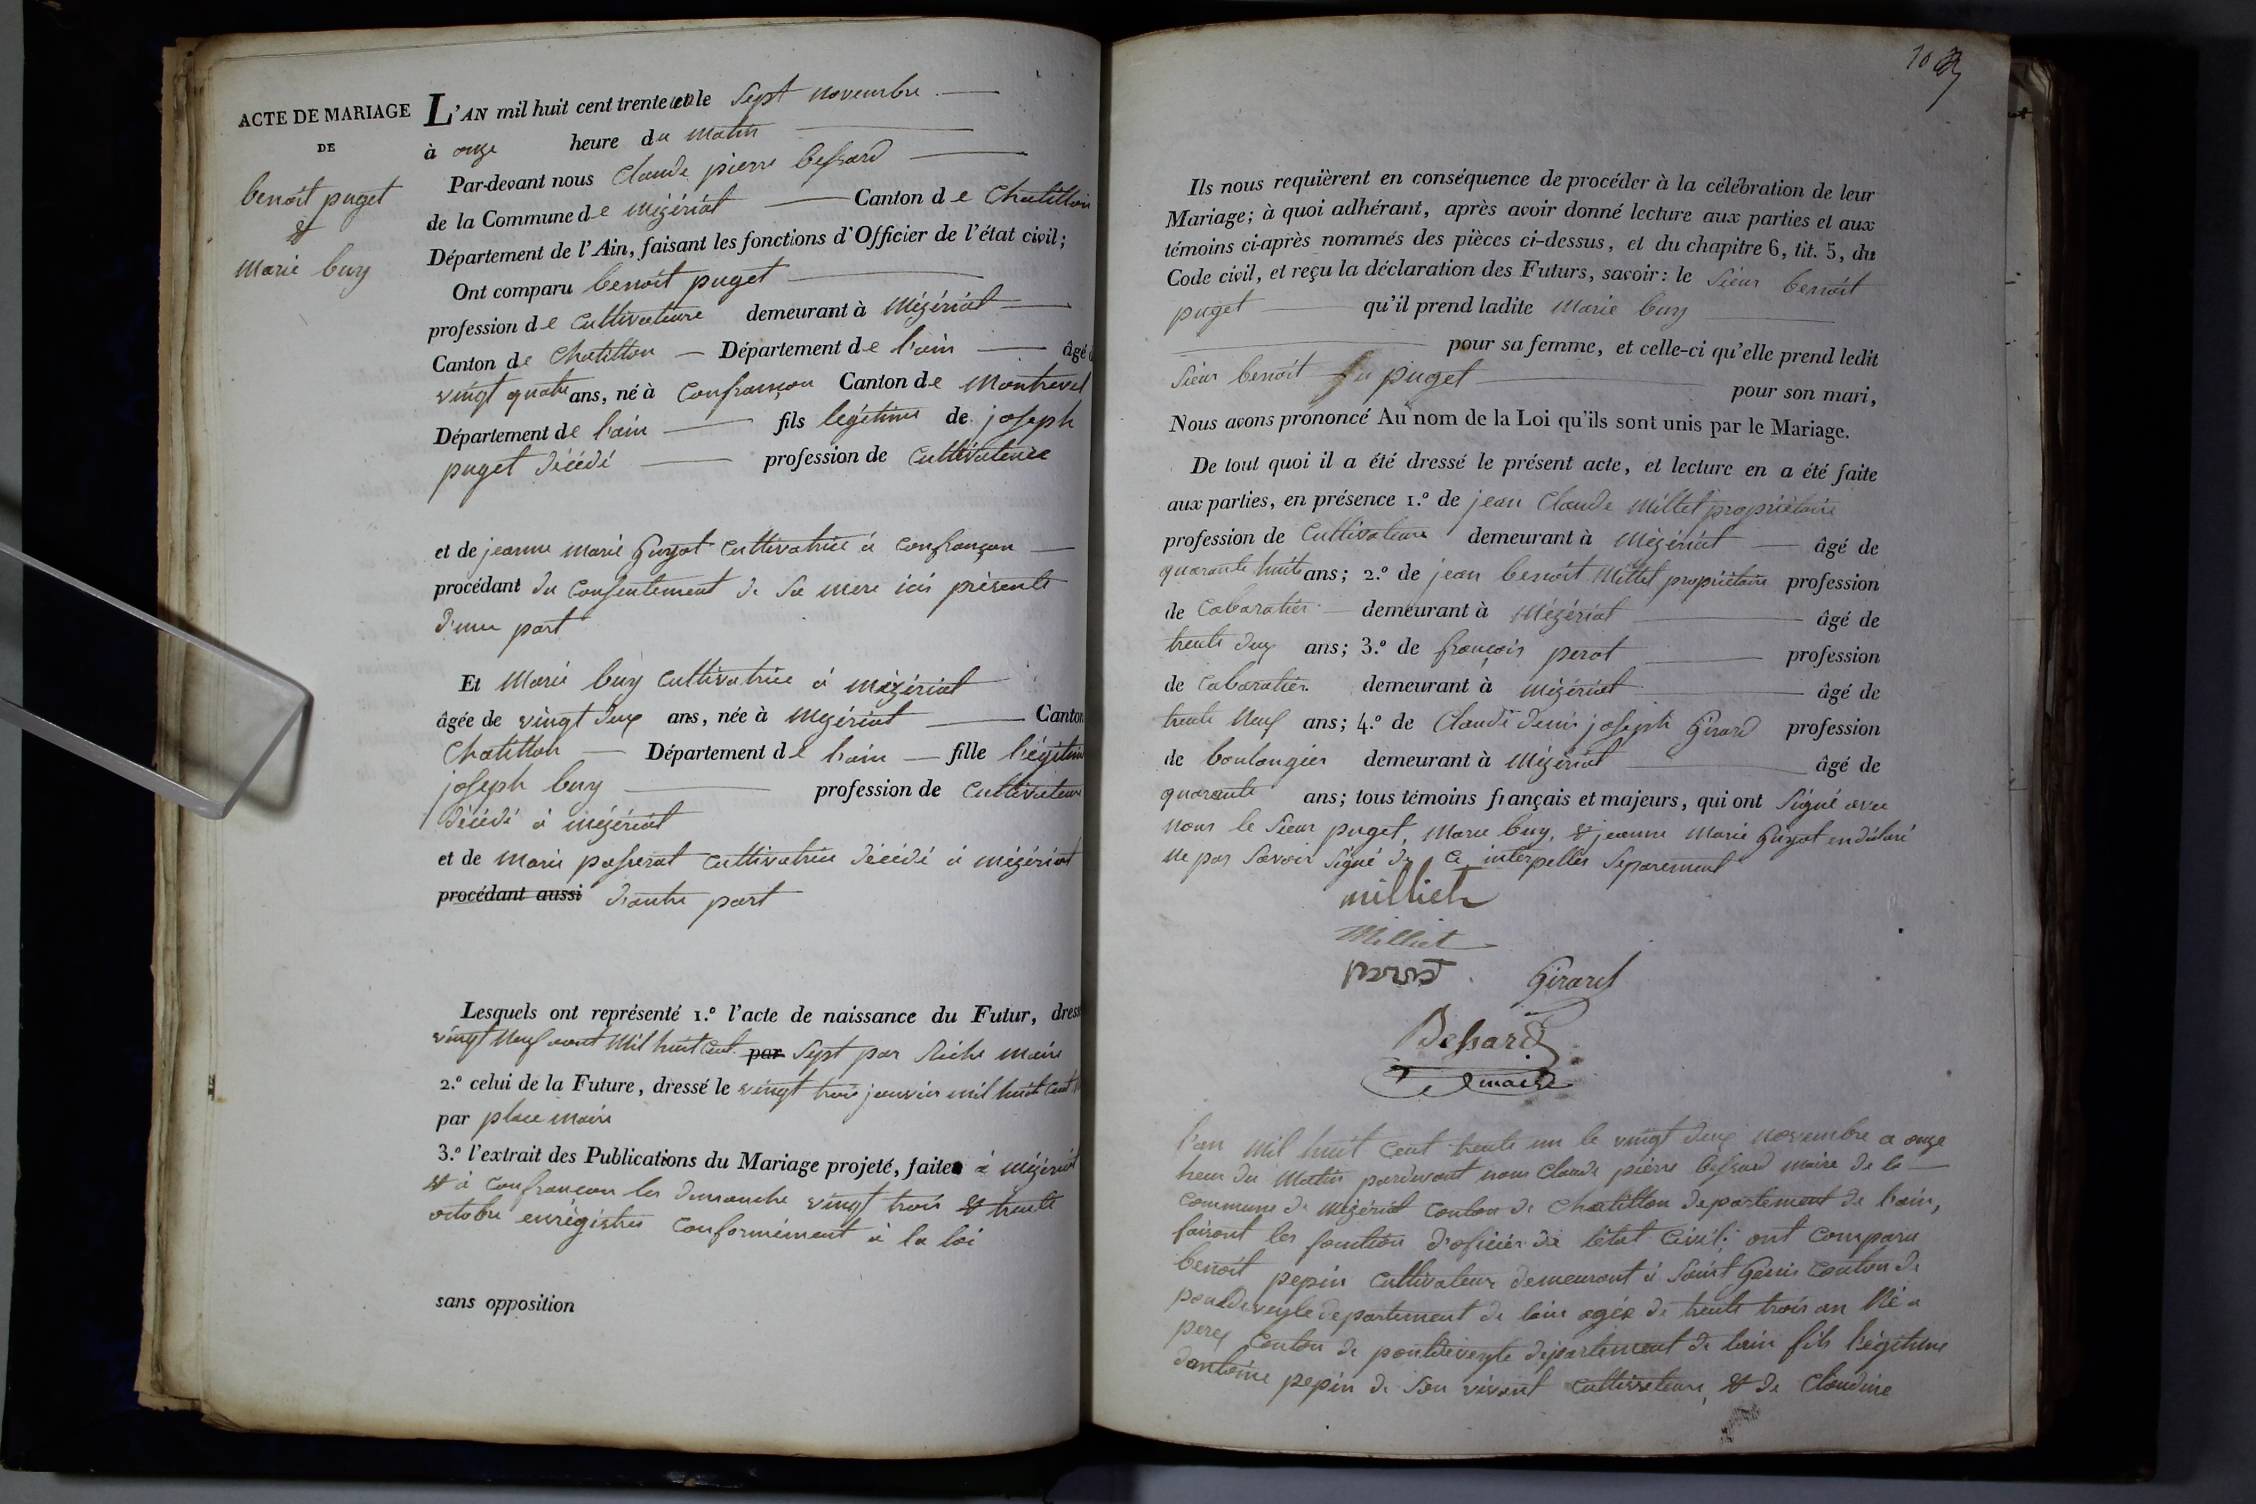 ACTE DE MARIAGE
DE
benoit puget
&
Marie buy
L'AN mil huit cent trente un le Sept novembre
à onze heure du Matin
Par-devant nous Claude pierre Bessard
de la Commune de Mézériat Canton de Chatillon
Département de l'Ain, faisant les fonctions d'Officier de l'état civil;
Ont comparu benoit puget
profession de Cultivateure demeurant à Mézériat
Canton de Chatillon Département de l'ain âgé d
vingt quatre ans, né à Confrançon Canton de Montrevel
Département de l'ain fils légitime de joseph
puget décédé profession de Cultivateure
et de jeanne marie Guyot Cultivatrice à Confrançon
procédant du Consentement de Sa mere ici présente
d'une part
Et Marie buy Cultivatrice à Mézériat
âgée de vingt deux ans, née à Mézériat Canton
Chatillon Département de l'ain fille légitime
joseph buy profession de Cultivateure
décédé à mézériat
et de marie passerat Cultivatrice décédé à mézériat
procédant aussi d'autre part
Lesquels ont représenté 1.º l'acte de naissance du Futur, dress
vingt Neuf aout Mil huit Cent par Sept par Riche maire
2.º celui de la Future, dressé le vingt trois janvier mil huit Cent
par place maire
3.º l'extrait des Publications du Mariage projeté, faites à mézériat
& à Confrançon les dimanche vingt trois & trente
octobre enrégistres Conformément à la loi
sans opposition
103
Ils nous requièrent en conséquence de procéder à la célébration de leur
Mariage; à quoi adhérant, après avoir donné lecture aux parties et aux
témoins ci-après nommés des pièces ci-dessus, et du chapitre 6, tit. 5, du
Code civil, et reçu la déclaration des Futurs, savoir: le Sieur benoit
puget qu'il prend ladite Marie buy
pour sa femme, et celle-ci qu'elle prend ledit
Sieur benoit puget pour son mari,
Nous avons prononcé Au nom de la Loi qu'ils sont unis par le Mariage.
De tout quoi il a été dressé le présent acte, et lecture en a été faite
aux parties, en présence 1.º de jean Claude Millet propriétaire
profession de Cultivateure demeurant à Mézériat âgé de
quarante huit ans; 2.º de jean benoit Millet propriétaire profession
de Cabaratier demeurant à Mézériat âgé de
trente deux ans; 3.º de françois perat profession
de Cabaratier demeurant à mézériat âgé de
trente Neuf ans; 4.º de Claude denis joseph Girard profession
de boulangier demeurant à Mézériat âgé de
quarante ans; tous témoins français et majeurs, qui ont Signé avec
nous le Sieur puget, Marie buy, & jeanne Marie Guyot en déclaré
ne pas Savoir Signé de Ce interpelles Séparement
milliet
Milliet
perat Girard
Bessard
maire
l'an mil huit Cent trente un le vingt deux novembre a onze
heur du Matin pardevant nous Claude pierre Bessard maire de la
Commune de Mézériat Conton de Chatillon département de l'ain,
faisant les fonction d'oficier de l'état Civil; ont Comparu
benoit pepin Cultivateur demeurant à Saint Genis Conton de
pondeveyle département de lain agée de trente trois an Né a
perex Conton de pondeveyle département de lain fils légitime
dantoine pepin de Son vivant Cultivateure, & de Claudine